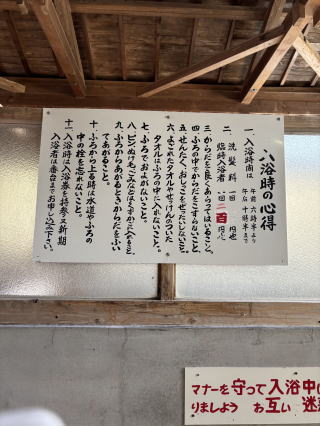 入浴時の心得
一、入浴時間は 午前 六時半より
午后 十時半まで
二、洗髪料 一回 円也
臨時入浴者 一回 二百円也
三、からだを良くあらってはいること。
四、ふろの中でからだをこすらないこと。
五、せんたく、おしっこをぜったいしないこと。
六、よごれたタオルやせっけんのついた
タオルはふろの中に入れないこと。
七、ふろでおよがないこと。
八、ビン、ぬけ毛、ごみなどはくずかごに入れること。
九、ふろからあがるときからだをふい
てあがること。
十、ふろから上る時は水道やふろの
中の栓を忘れないこと。
十一、入浴時は入浴券を持参又新期
入浴者は番台までお申し込み下さい。
マナーを守って入浴中
りましょう お互い 迷